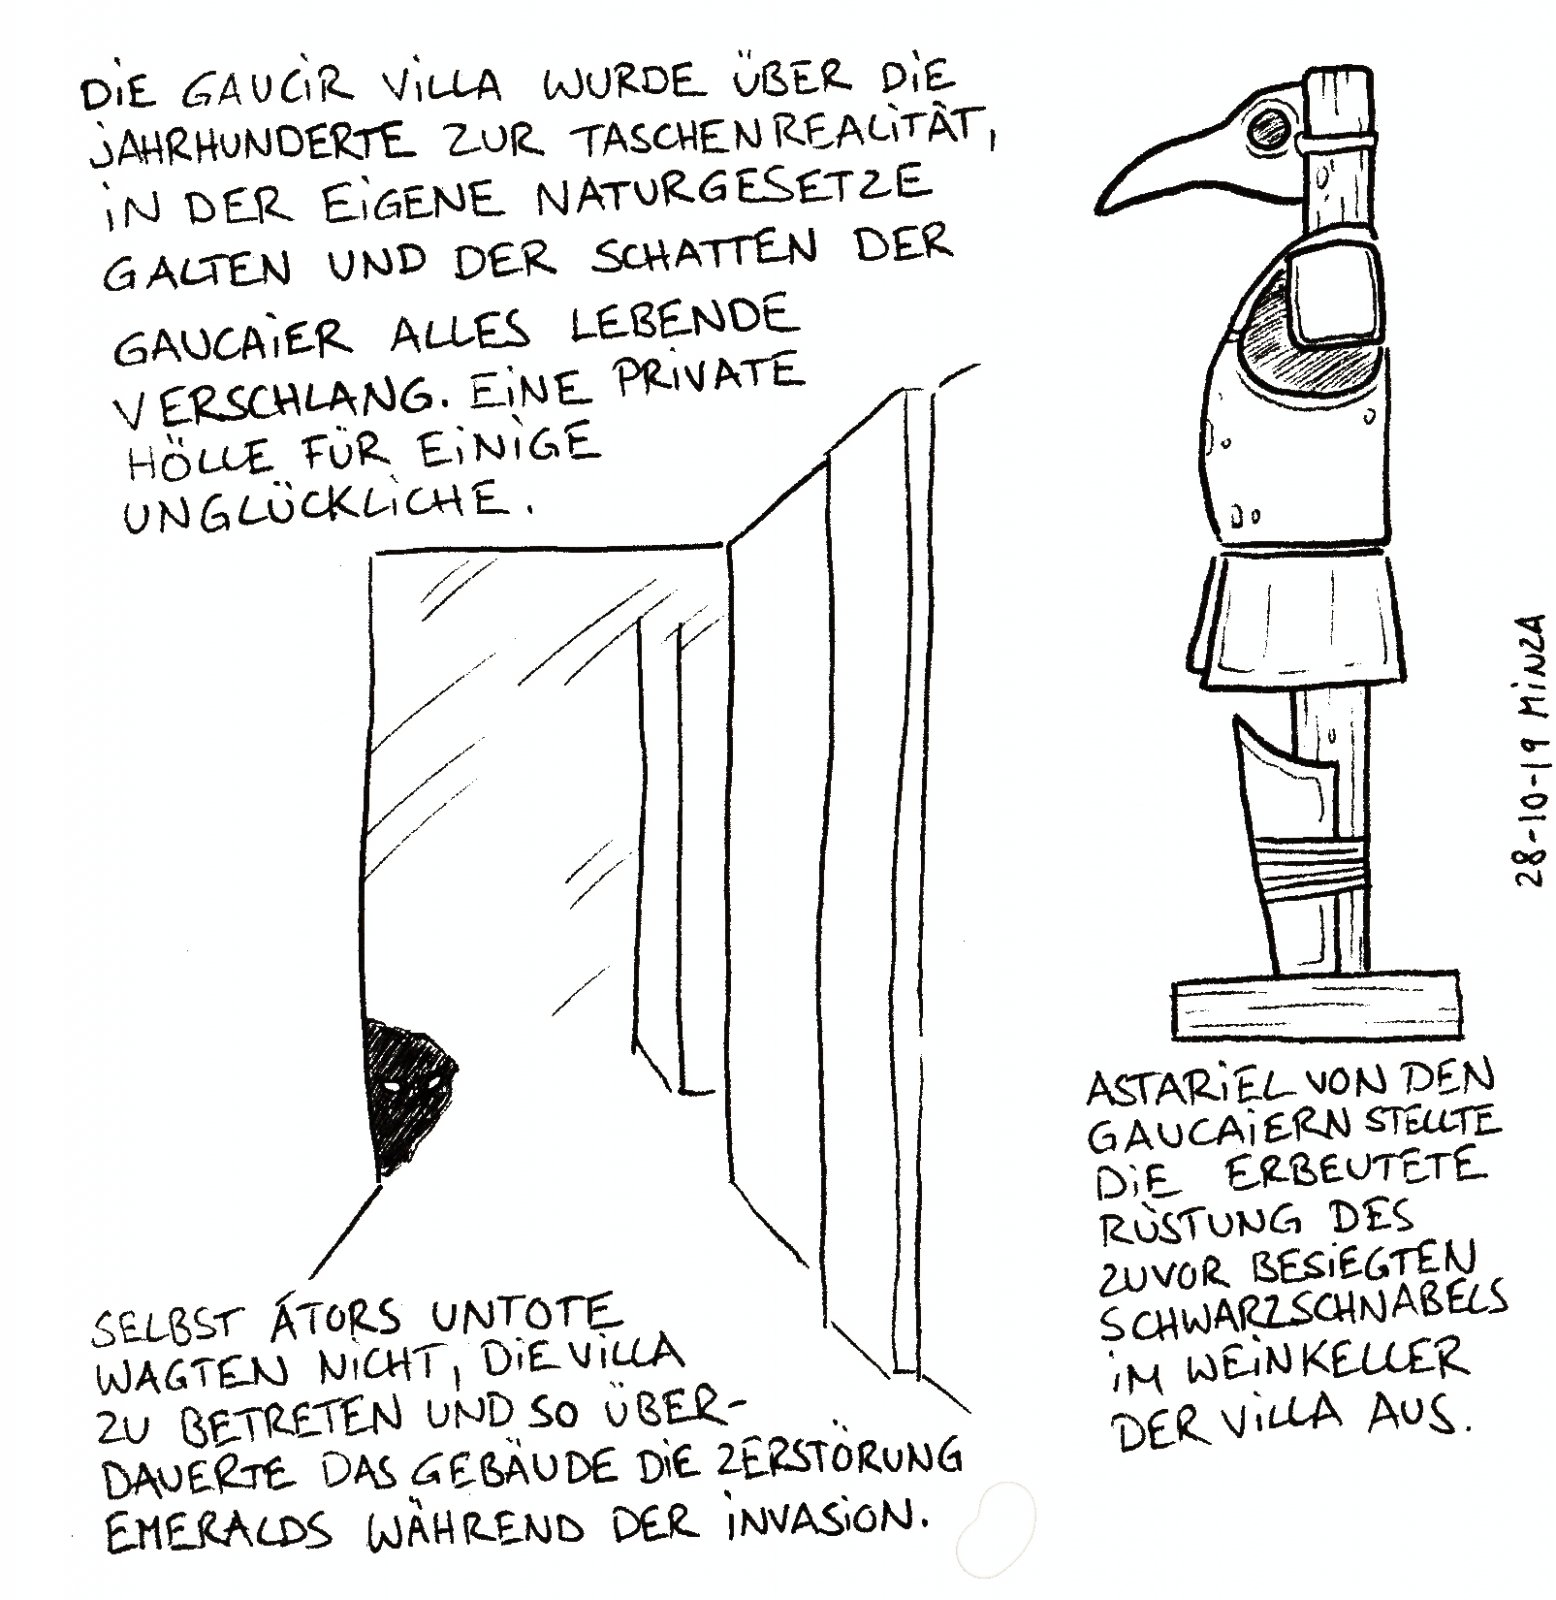 DiE GAUCiR ViLLA WURDE ÜBER DiE
JAHRHUNDERTE ZUR TASCHENREALiTÄT,
iN DER EiGENE NATURGESETZE
GALTEN UND DER SCHATTEN DER
GAUCAiER ALLES LEBENDE
VERSCHLANG. EiNE PRiVATE
HÖLLE FÜR EiNiGE
UNGLÜCKLiCHE.
SELBST ÁTORS UNTOTE
WAGTEN NiCHT, DiE ViLLA
ZU BETRETEN UND SO ÜBER-
DAUERTE DAS GEBÄUDE DiE ZERSTÖRUNG
EMERALDS WÄHREND DER iNVASiON.
ASTARiEL VON DEN
GAUCAiERN STELLTE
DiE ERBEUTETE
RÜSTUNG DES
ZUVOR BESiEGTEN
SCHWARZSCHNABELS
iM WEiNKELLER
DER ViLLA AUS.
28-10-19 MiNZA